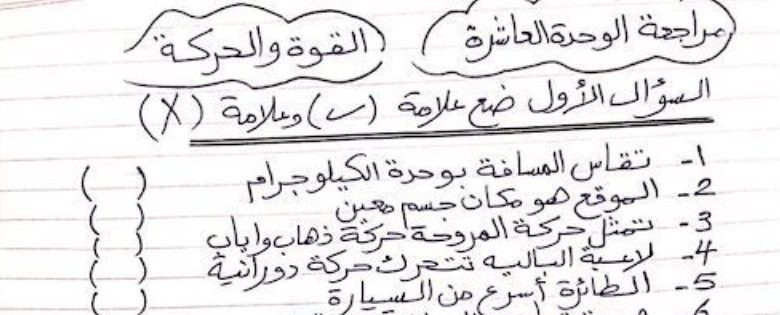 مراجعة الوحدة العاشرة
القوة والحركة
السؤال الأول ضع علامة (✓) وعلامة (X)
1- تقاس المسافة بوحدة الكيلوجرام ( )
2- الموقع هو مكان جسم معين ( )
3- تمثل حركة المروحة حركة ذهاب واياب ( )
4- لاعبة الباليه تتحرك حركة دورانية ( )
5- الطائرة أسرع من السيارة ( )
6-